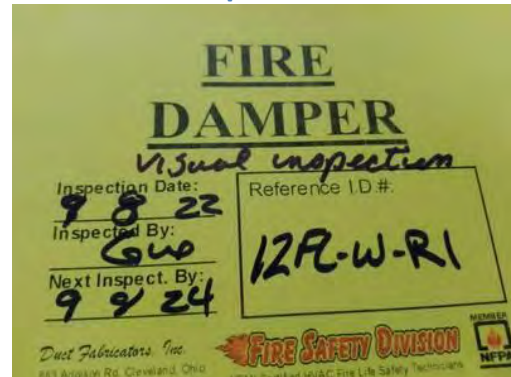 FIRE
DAMPER
Visual inspection
Inspection Date:
9 8 22
Inspected By:
Gus
Next Inspect. By:
9 9 24
Reference I.D.#:
12FL-W-R1
Duct Fabricators, Inc.
Rd. Cleveland, Ohio
FIRE SAFETY DIVISION
HVAC Fire Life Safety Technicians
MEMBER
NFPA